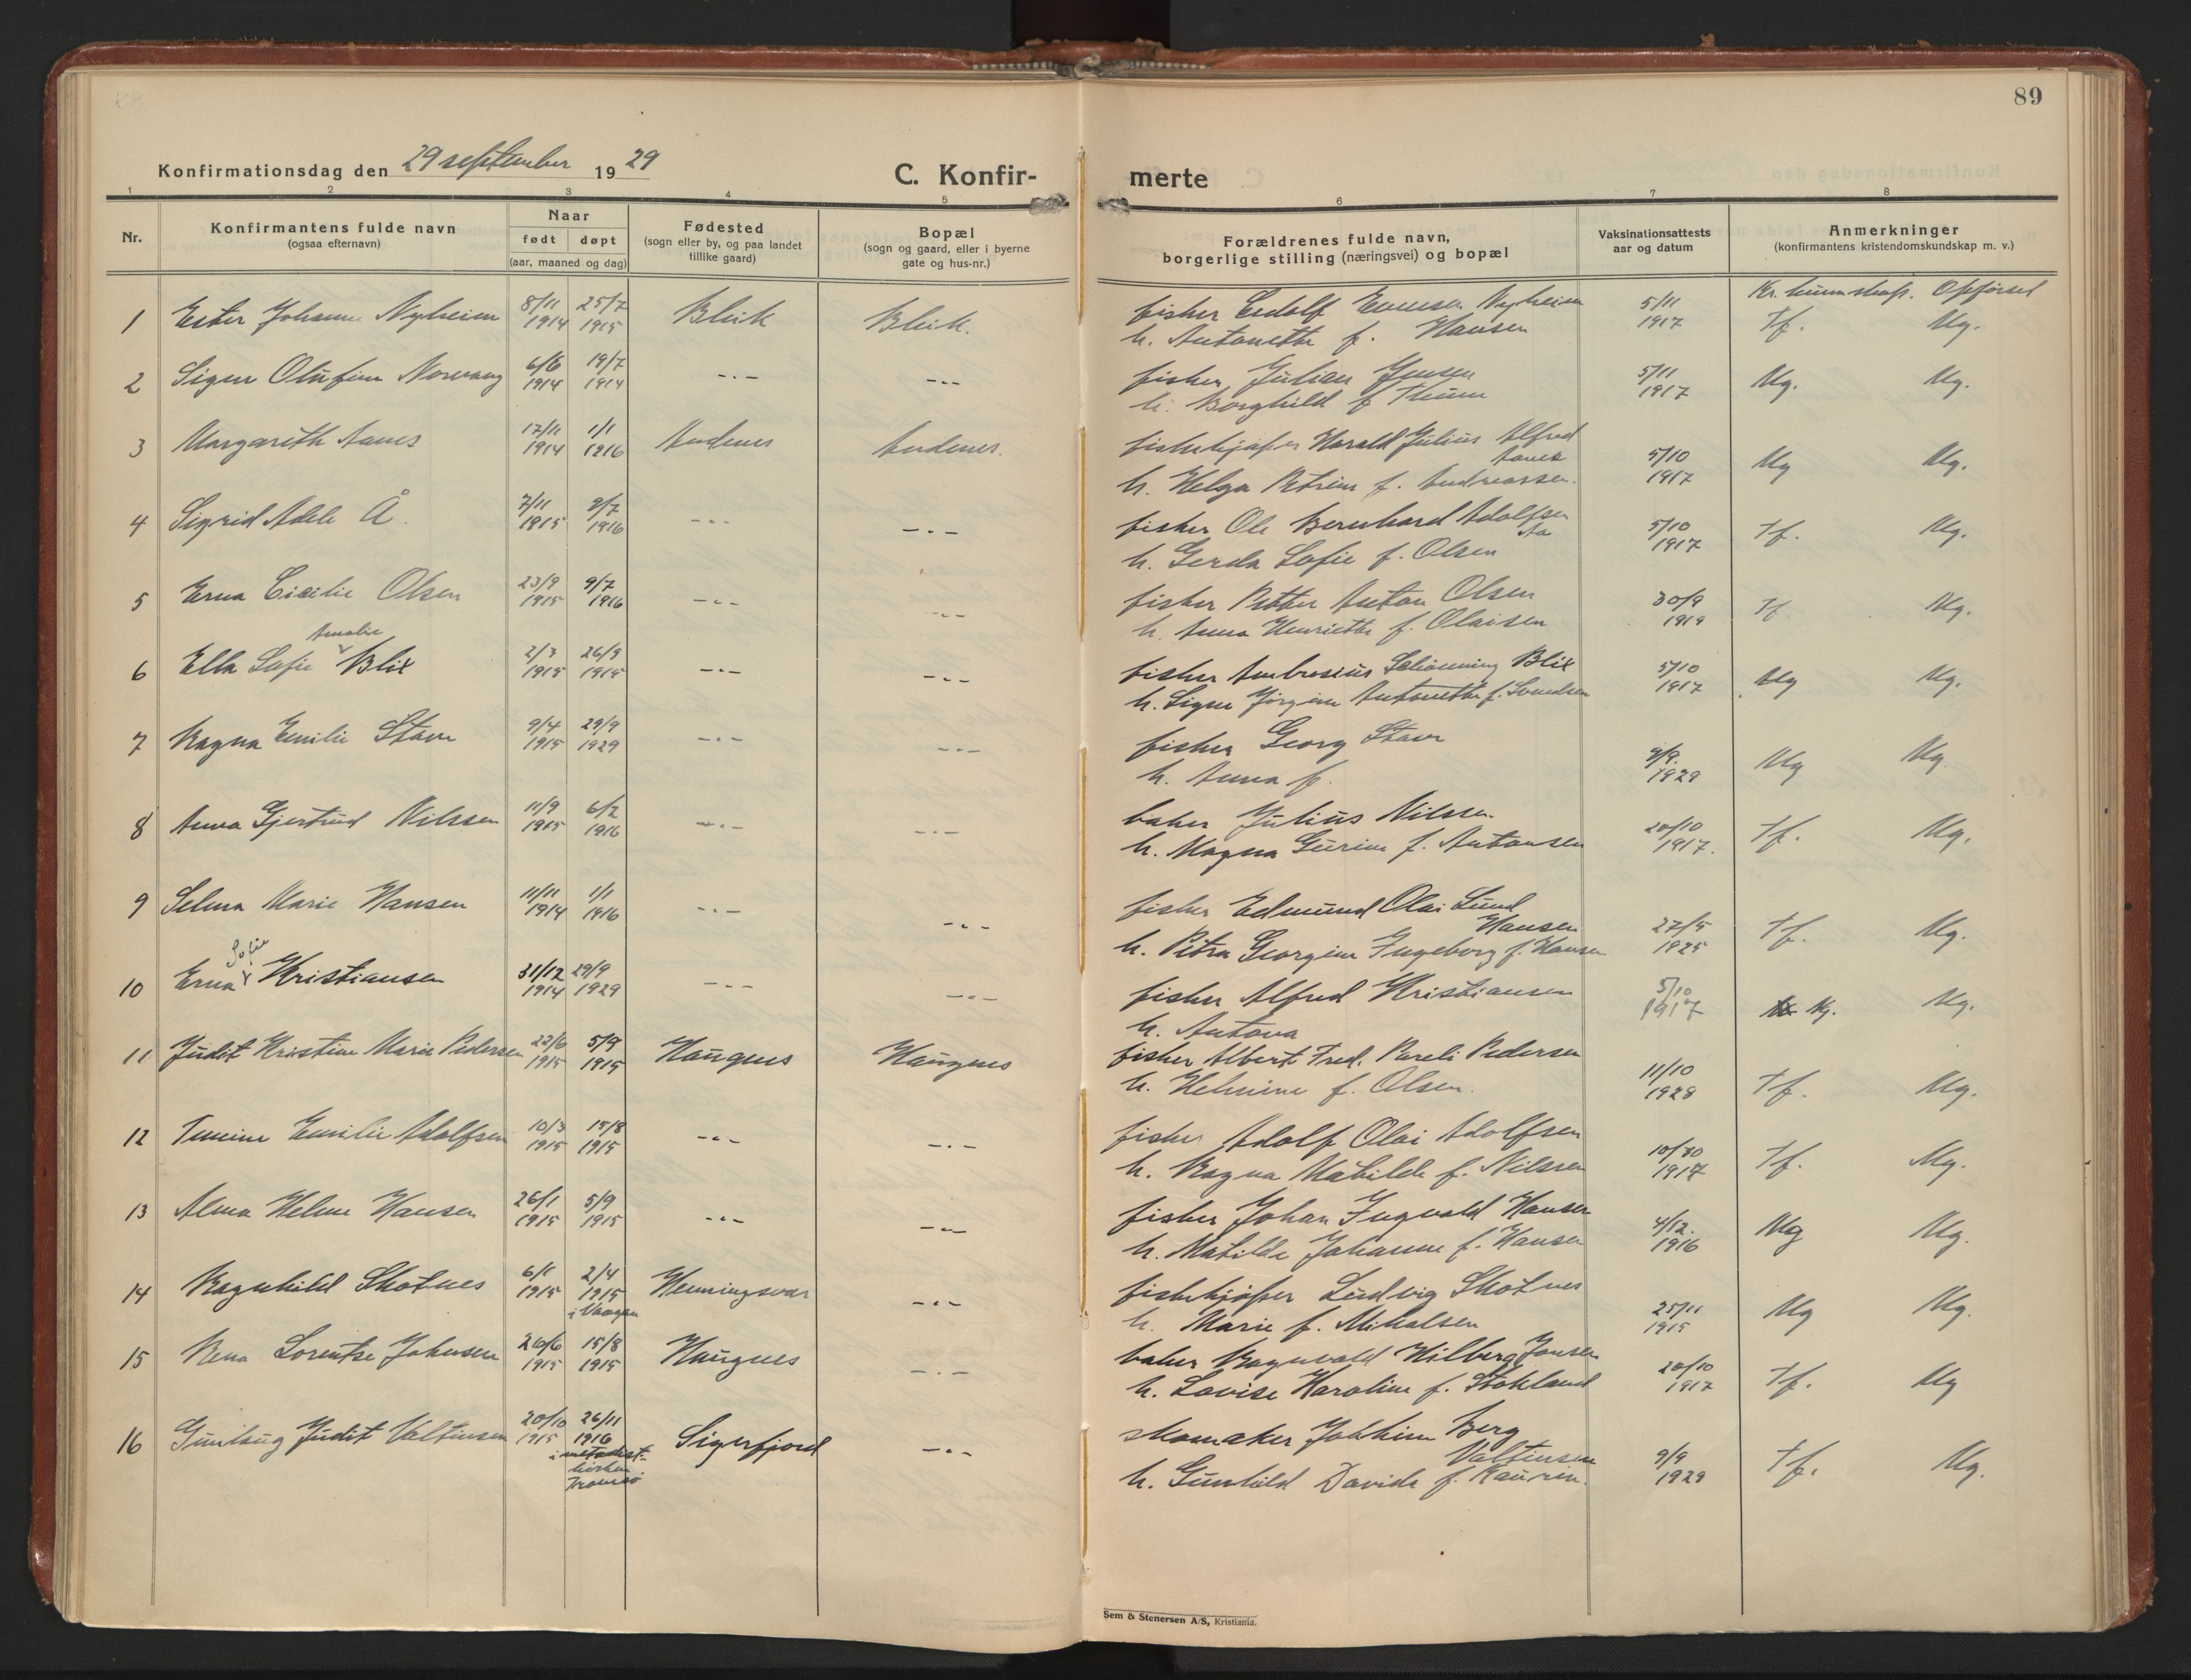 89
Konfirmationsdag den 29 september 1929
C. Konfir-
merte
1 2 3 4 5 6 7 8
Nr.
Konfirmantens fulde navn
(ogsaa efternavn)
Naar
født døpt
(aar, maaned og dag)
Fødested
(sogn eller by, og paa landet
tillike gaard)
Bopæl
(sogn og gaard, eller i byerne
gate og hus-nr.)
Forældrenes fulde navn,
borgerlige stilling (næringsvei) og bopæl
Vaksinationsattests
aar og datum
Anmerkninger
(konfirmantens kristendomskundskap m. v.)
Kr. kunnskap. Opførsel
1 Ester Johanne Nyheim 8/11 25/7 Bleik Bleik. fisker Nyheim 5/11
1914 1915 h. Antonette f. Hansen 1917 Tf. Mg.
2 Signe Olufine Norvang 6/6 19/7 -.- -.- fisker Julian Jensen 5/11 Mg. Mg.
1914 1914 h. Borghild f. 1917
3 Margarith Aanes 17/11 1/1 Andenes Andenes. fiskekjøper Harald Julius Alfred
1914 1916 Aanes 5/10 Mg Mg.
h. Helga Petrine f. Andreassen. 1917
4 Sigrid Adele Å. 7/11 9/7 -.- -.- fisker Ole Bernhard Adolfsen
1915 1916 Aa 5/10 Tf. Mg.
h. Gerda Sofie f. Olsen 1917
5 Erna Cicilie Olsen 23/9 9/7 -.- -.- fisker Petter Anton Olsen 30/9 Tf Mg.
1915 1916 h. Anna Henriette f. Olaisen 1919
Amalie
6 Ella Sofie Blix 2/3 26/9 -.- -.- fisker Ambrosius Schønning Blix 5/10 Mg Mg.
1915 1915 h. Signe Jørgine Antonette f. Svendsen 1917
7 Ragna Emilie Stave 9/4 29/9 -.- -.- fisker Georg Stave
1915 1929 h. Anna f. 9/9. 1929 Mg Mg.
8 Anna Gjertrud Nilssen 11/9 6/2 -.- -.- baker Julius Nilsen.
1915 1916 h. Magna Gurine f. Antonsen 20/10 1917. Tf. Mg.
9 Selma Marie Hansen 11/11 1/1 -.- -.- fisker Edmund Olai Lund
1914 1916 Hansen 27/5
h. Petra Georgine Ingeborg f. Hansen 1925 Tf. Mg.
Sofie
10 Erna Kristiansen 31/12 29/9 -.- -.- fisker Alfred Kristiansen 5/10
1914 1929 h. Antona 1917 Mg. Mg.
11 Judit Kristine Marie Pedersen 22/6 5/9 Haugnes Haugnes fisker Albert Fred. Pareli Pedersen
1915 1915 h. Helmine f. Olsen. 11/10 1928 Tf. Mg.
12 Emilie Adolfsen 10/3 15/8 -.- -.- fisker Adolf Olai Adolfsen
1915 1915 h. Ragna Matilde f. Nilssen 10/10 1917 Tf. Mg.
13 Alma Helene Hansen 26/1 5/9 -.- -.- fisker Johan Ingvald Hansen
1915 1915 h. Matilde Johanne f. Hansen 4/12. 1916 Mg Mg.
14 Ragnhild Skotnes 6/1 2/4 Henningsvær -.- fiskekjøper Ludvig Skotnes
1915 1915 h. Marie f. Mikalsen 25/11 1915 Mg Mg.
i Vaagan
15 Rena Lorentse Johnsen 26/6 15/8 Haugnes -.- baker Ragnvald Hilberg Jonsen
1915 1915 h. Lovise Karoline f. Stokland 20/10 1917 Tf. Mg
16 Gunlaug Judit Valtinsen 20/10 26/11 Sigerfjord -.- skomaker Joakim Berg
1915 1916 Valtinsen 9/9
i metodist-
kirken
Tromsø
h. Gunhild Davida f. Kaurin. 1929 Tf. Mg.
Sem & Stenersen A/S, Kristiania.